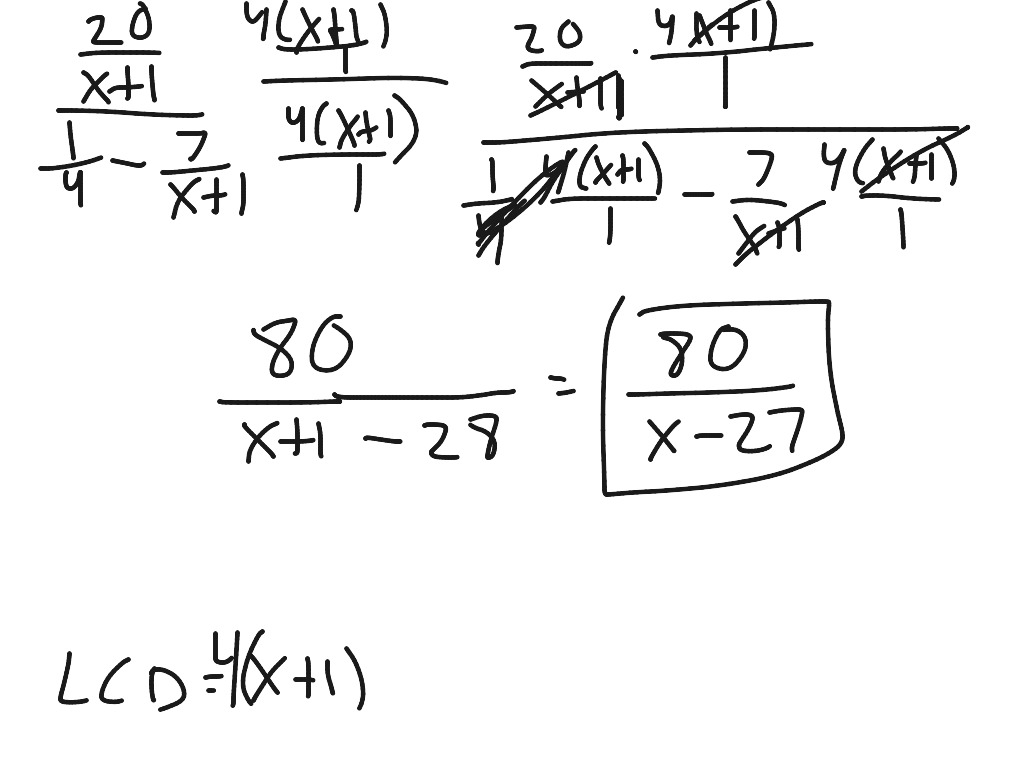 \frac{\frac{20}{x+1}}{\frac{1}{4} - \frac{7}{x+1}} \frac{\frac{4(x+1)}{1}}{\frac{4(x+1)}{1}} \frac{\frac{20}{x+1} \cdot \frac{4(x+1)}{1}}{\frac{1}{4} \frac{4(x+1)}{1} - \frac{7}{x+1} \frac{4(x+1)}{1}}
\frac{80}{x+1 - 28} = \frac{80}{x-27}
LCD = 4(x+1)